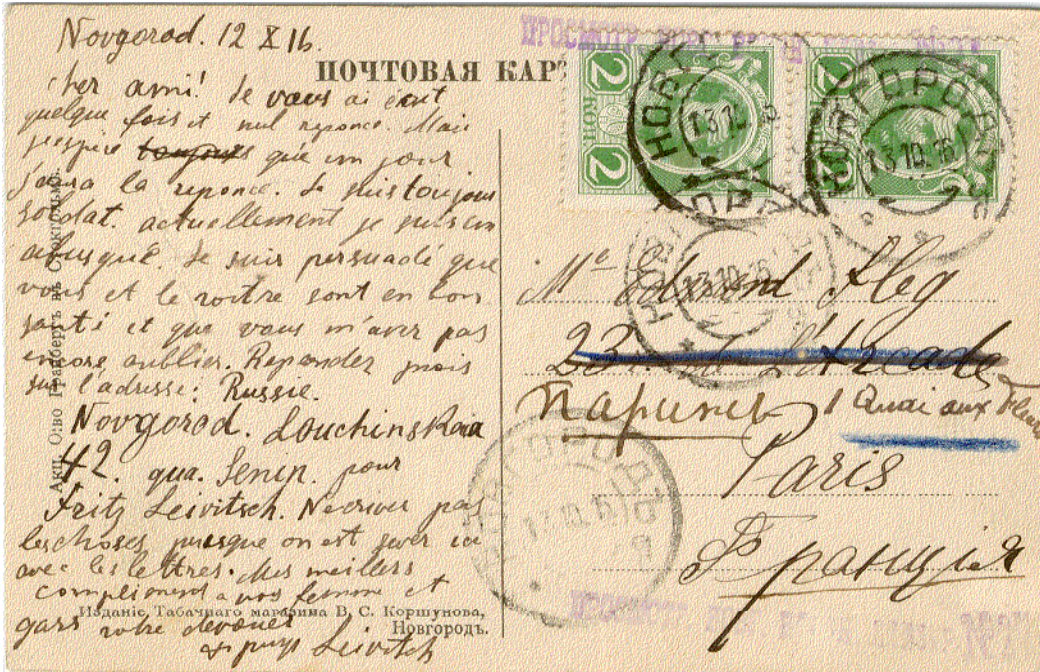 Novgorod. 12 X 16.
ПОЧТОВАЯ КАР
cher ami! Je vous ai écrit
quelque fois et nul reponce. Mais
j'espère toujours que un jour
j'aura la reponce. Je suis toujour
soldat. actuellement je suis en
abusqué. Je suis persuadé que
vous et le voitre sont en bon
santé et que vous m'aver pas
encore oublier. Reponder mois
sur l'adresse: Russie.
Novgorod. Louchinskaia
42. qua. Senep. pour
Fritz Leivitsch. N'ecriver pas
les choses presque on est sever ici
avec les lettres. Mes meillers
compliment a vos femme et
gars votre devoué
Leivitch
Акц. О:во Гранбергъ въ Стокгольмѣ.
Изданіе Табачнаго магазина В. С. Коршунова,
Новгородъ.
ПРОСМОТР
2
2
ПОЧ
НОВГОРОД
13 10 16
НОВГОРОД
13.10.16
13.10.16
Mr Edmond Fleg
23 r. de l'Arcade
Парижъ 1 Quai aux Fleurs
Paris
Франція
НОВГОРОДЪ
ПРОСМОТР